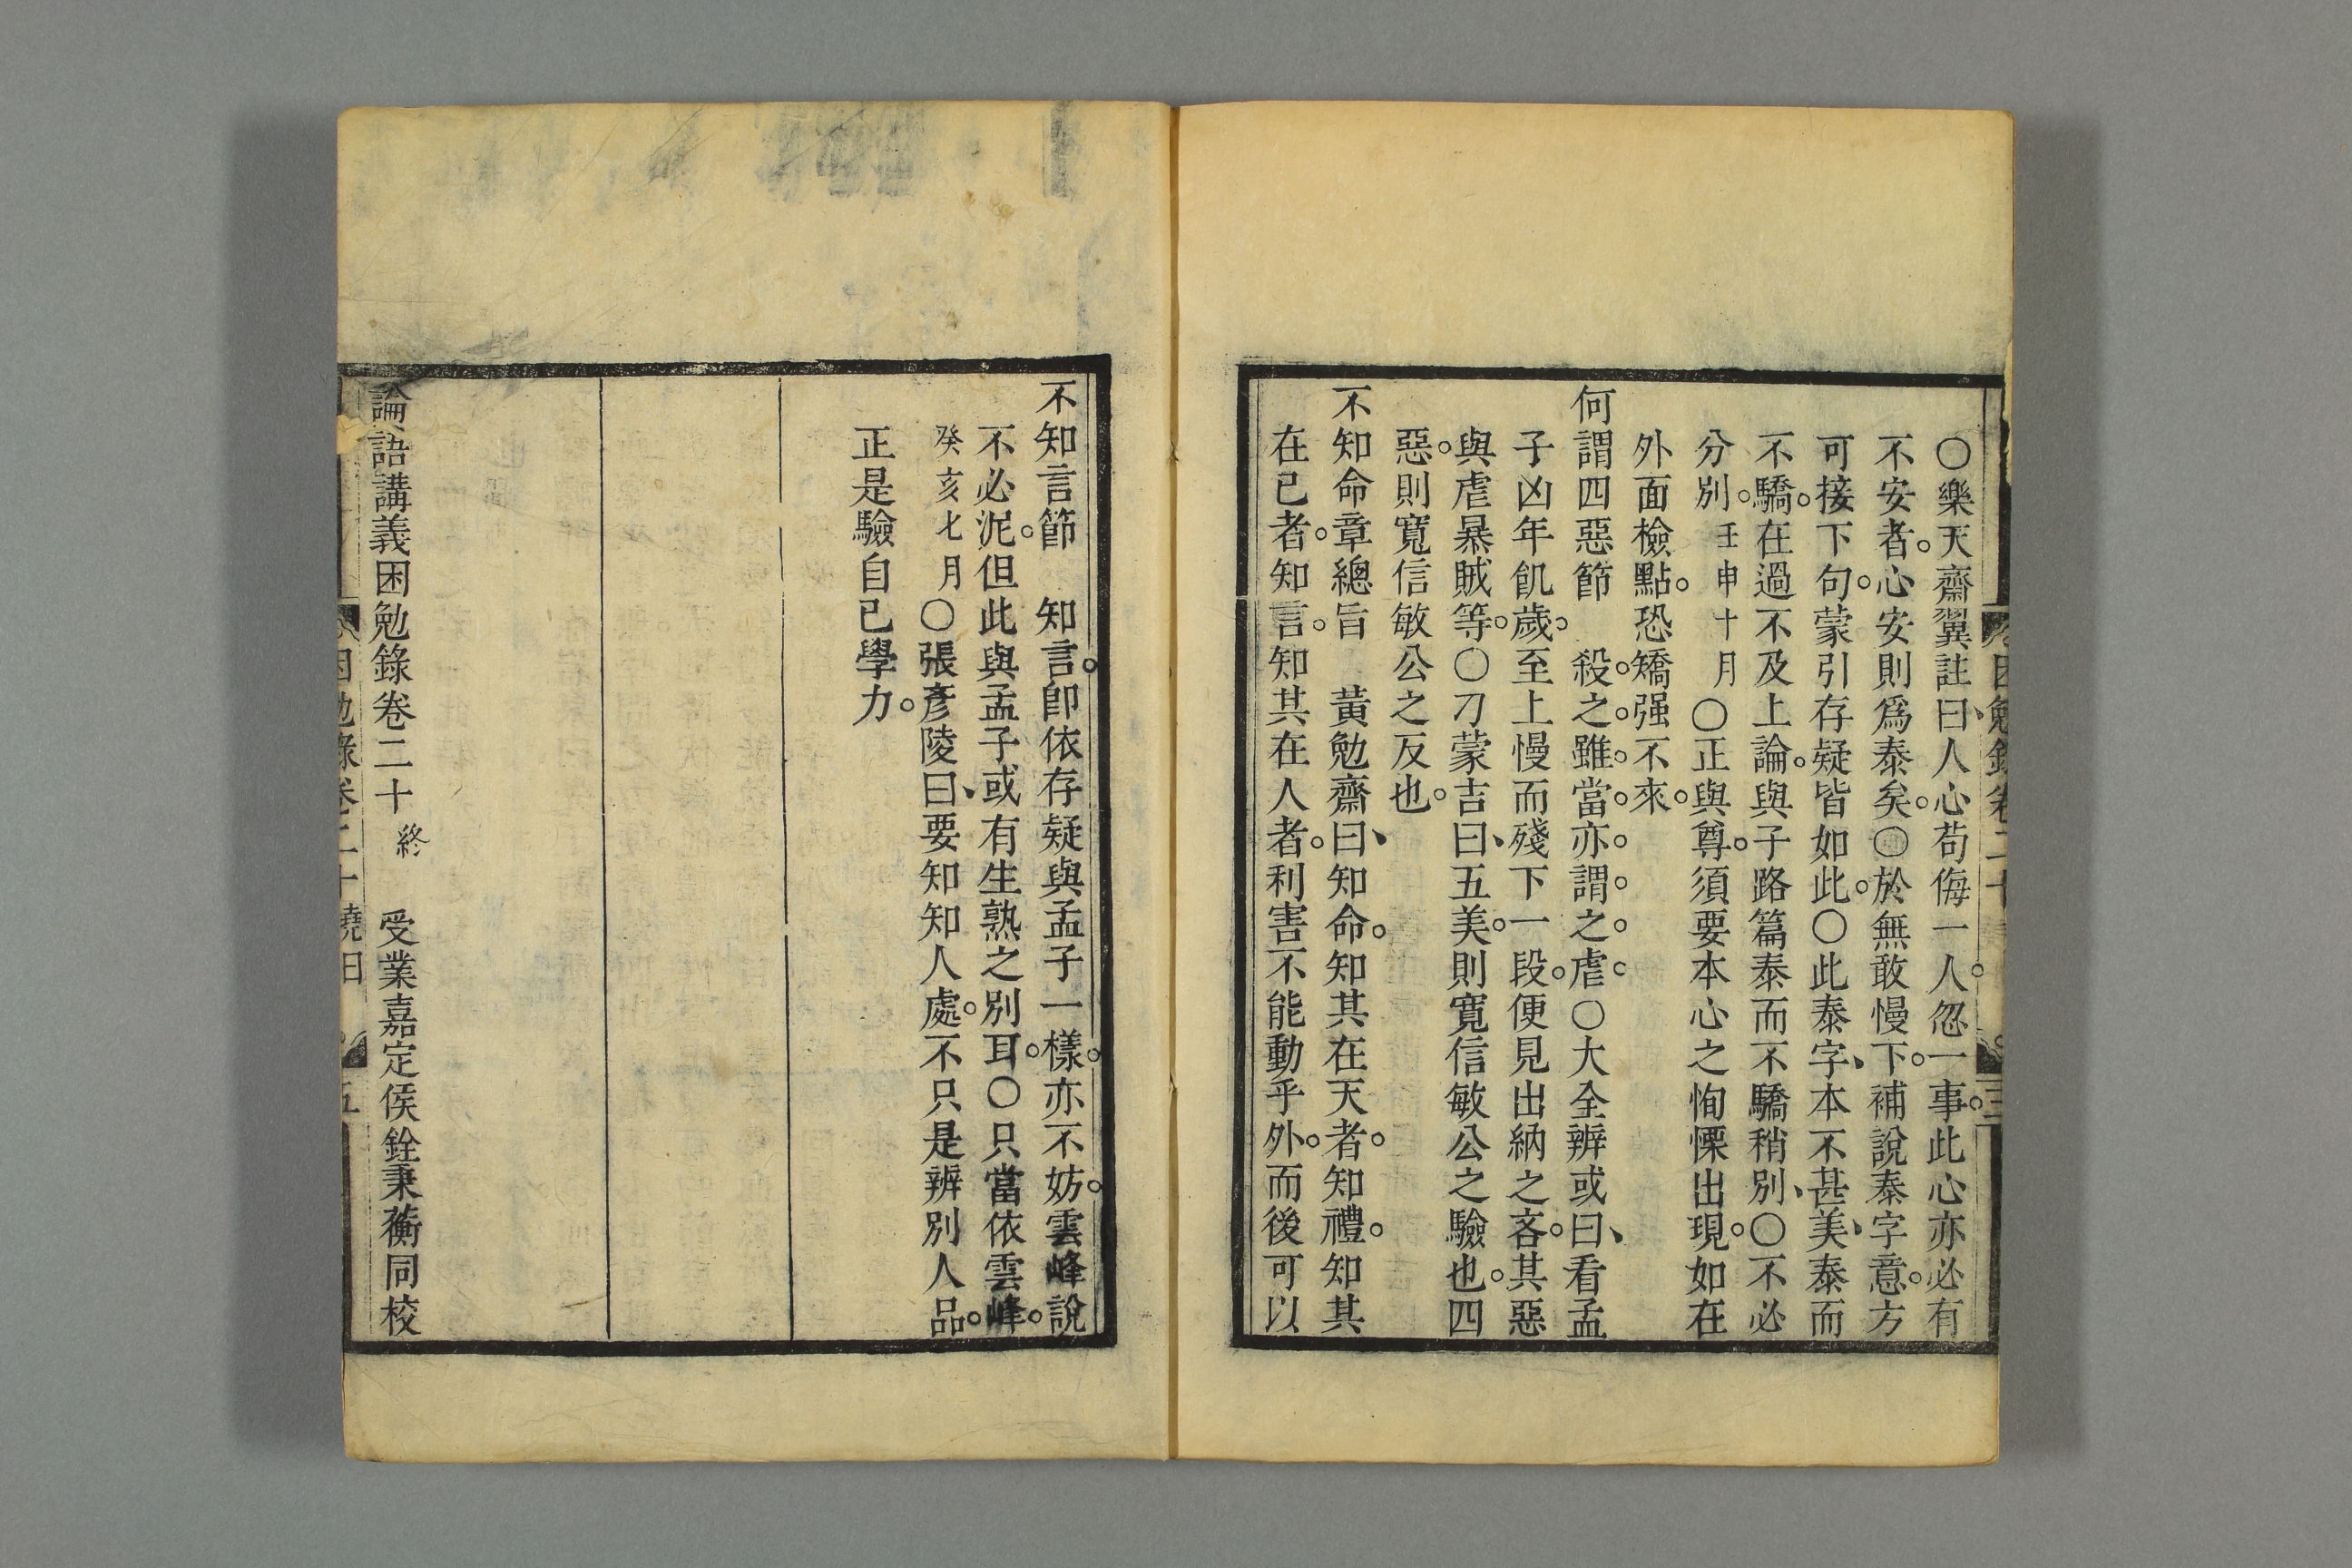 困勉錄卷二十
○樂天齋翼註曰人心苟侮一人忽一事此心亦必有
不安者心安則爲泰矣○於無敢慢下補說泰字意方
可接下句蒙引存疑皆如此○此泰字本不甚美泰而
不驕在過不及上論與子路篇泰而不驕稍別○不必
分別壬申十月○正與尊須要本心之恂慄出現如在
外面檢點恐矯强不來
何謂四惡節　殺之雖當亦謂之虐○大全辨或曰看孟
子凶年飢歲至上慢而殘下一段便見出納之吝其惡
與虐暴賊等○刁蒙吉曰五美則寬信敏公之驗也四
惡則寬信敏公之反也
不知命章總旨　黃勉齋曰知命知其在天者知禮知其
在已者知言知其在人者利害不能動乎外而後可以
不知言節　知言卽依存疑與孟子一樣亦不妨雲峰說
不必泥但此與孟子或有生熟之別耳○只當依雲峰
癸亥七月○張彥陵曰要知知人處不只是辨別人品
正是驗自已學力
論語講義困勉錄卷二十終　受業嘉定侯銓秉蘅同校
困勉錄卷二十堯曰　五